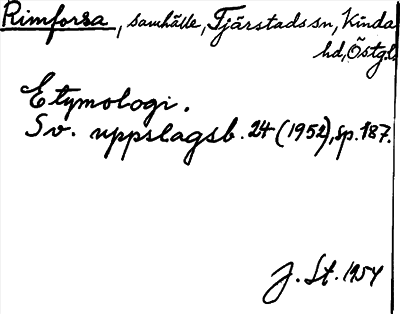 Rimforsa, samhälle, Tjärstads sn, Kinda
hd, Östgl.
Etymologi.
Sv. uppslagsb. 24 (1952), sp. 187.
J. St. 1954